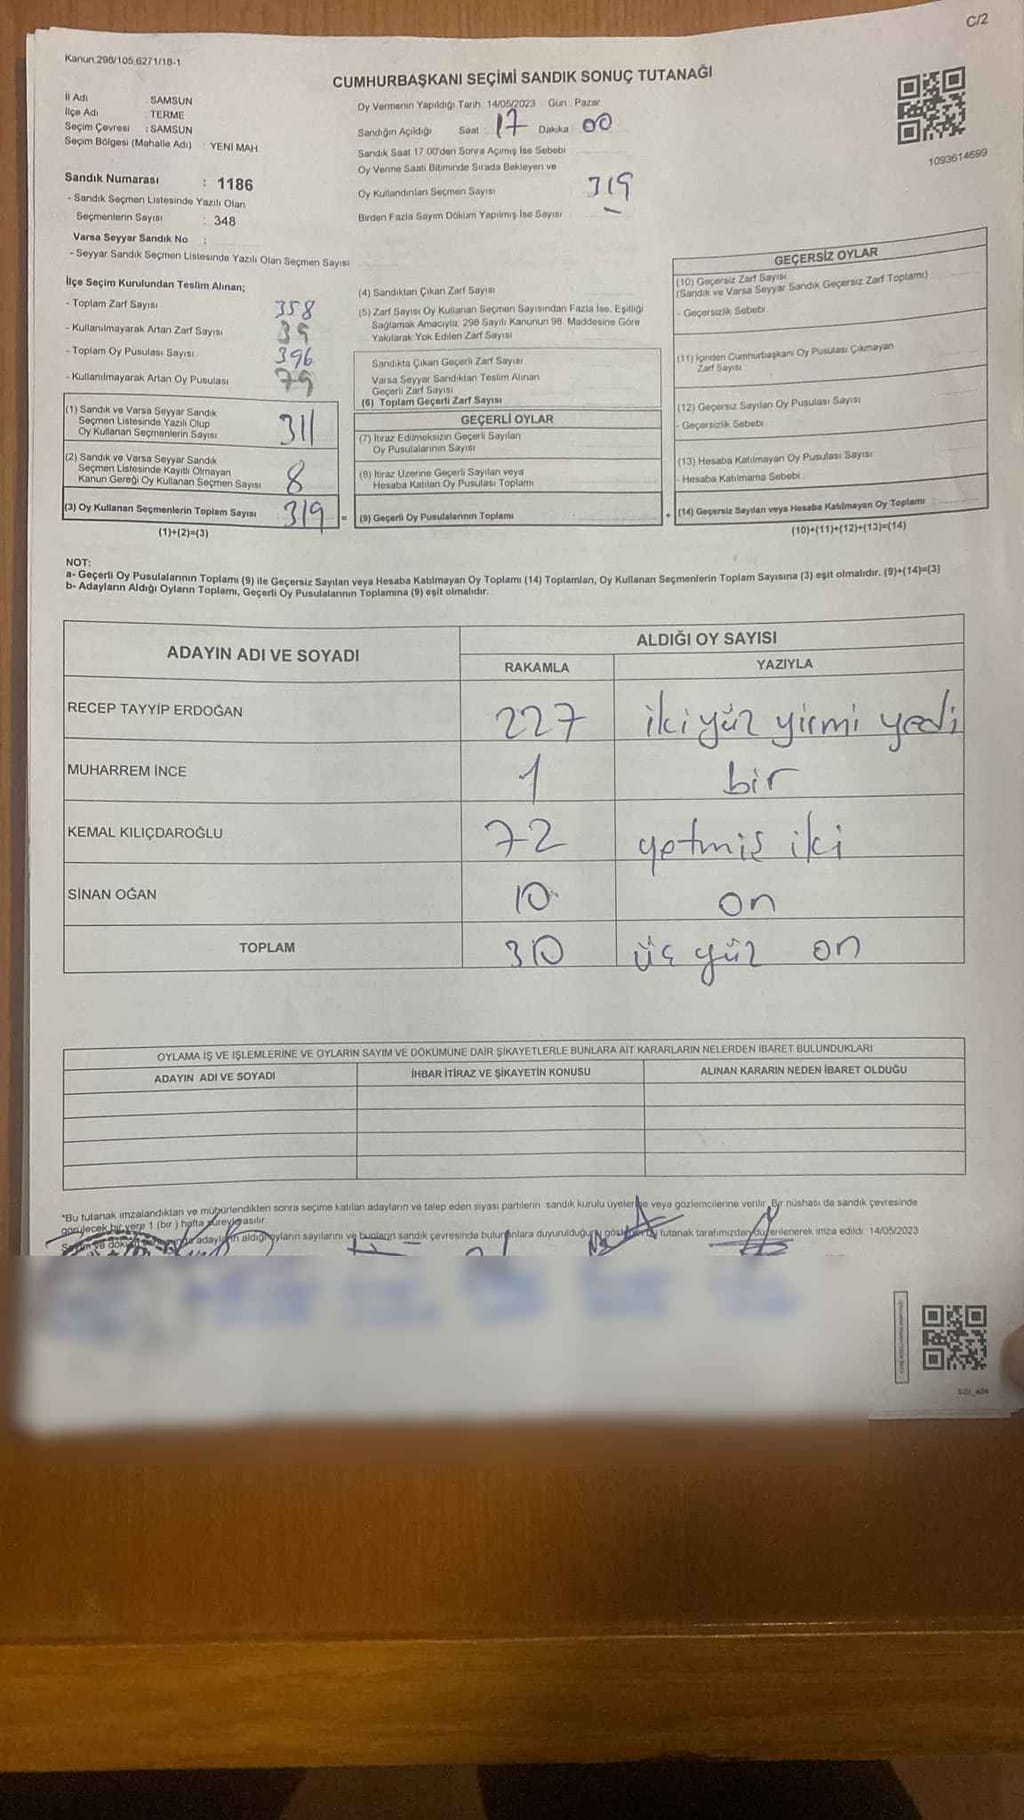 C/2
Kanun.298/105,6271/18-1
CUMHURBAŞKANI SEÇİMİ SANDIK SONUÇ TUTANAĞI
İl Adı : SAMSUN
İlçe Adı : TERME
Seçim Çevresi : SAMSUN
Seçim Bölgesi (Mahalle Adı) : YENİ MAH.
Oy Vermenin Yapıldığı Tarih 14/05/2023 Gün : Pazar
Sandığın Açıldığı Saat : 17 Dakika 00
Sandık Saat 17.00'den Sonra Açımış İse Sebebi
Oy Verme Saati Bitiminde Sırada Bekleyen ve
Oy Kullandırılan Seçmen Sayısı 319
Birden Fazla Sayım Döküm Yapılmış İse Sayısı -
1093614699
Sandık Numarası : 1186
- Sandık Seçmen Listesinde Yazılı Olan
Seçmenlerin Sayısı : 348
Varsa Seyyar Sandık No :
- Seyyar Sandık Seçmen Listesinde Yazılı Olan Seçmen Sayısı
İlçe Seçim Kurulundan Teslim Alınan;
- Toplam Zarf Sayısı 358
- Kullanılmayarak Artan Zarf Sayısı 39
- Toplam Oy Pusulası Sayısı 396
- Kullanılmayarak Artan Oy Pusulası 79
(1) Sandık ve Varsa Seyyar Sandık
Seçmen Listesinde Yazılı Olup
Oy Kullanan Seçmenlerin Sayısı 311
(2) Sandık ve Varsa Seyyar Sandık
Seçmen Listesinde Kayıtlı Olmayan
Kanun Gereği Oy Kullanan Seçmen Sayısı 8
(3) Oy Kullanan Seçmenlerin Toplam Sayısı 319 =
(1)+(2)=(3)
(4) Sandıktan Çıkan Zarf Sayısı
(5) Zarf Sayısı Oy Kullanan Seçmen Sayısından Fazla İse, Eşitliği
Sağlamak Amacıyla; 298 Sayılı Kanunun 98. Maddesine Göre
Yakılarak Yok Edilen Zarf Sayısı
Sandıkta Çıkan Geçerli Zarf Sayısı
Varsa Seyyar Sandıktan Teslim Alınan
Geçerli Zarf Sayısı
(6) Toplam Geçerli Zarf Sayısı
GEÇERLİ OYLAR
(7) İtiraz Edilmeksizin Geçerli Sayılan
Oy Pusulalarının Sayısı
(8) İtiraz Üzerine Geçerli Sayılan veya
Hesaba Katılan Oy Pusulası Toplamı
(9) Geçerli Oy Pusulalarının Toplamı +
GEÇERSİZ OYLAR
(10) Geçersiz Zarf Sayısı
(Sandık ve Varsa Seyyar Sandık Geçersiz Zarf Toplamı)
- Geçersizlik Sebebi
(11) İçinden Cumhurbaşkanı Oy Pusulası Çıkmayan
Zarf Sayısı
(12) Geçersiz Sayılan Oy Pusulası Sayısı
- Geçersizlik Sebebi
(13) Hesaba Katılmayan Oy Pusulası Sayısı
- Hesaba Katılmama Sebebi
(14) Geçersiz Sayılan veya Hesaba Katılmayan Oy Toplamı
(10)+(11)+(12)+(13)=(14)
NOT:
a- Geçerli Oy Pusulalarının Toplamı (9) ile Geçersiz Sayılan veya Hesaba Katılmayan Oy Toplamı (14) Toplamları, Oy Kullanan Seçmenlerin Toplam Sayısına (3) eşit olmalıdır. (9)+(14)=(3)
b- Adayların Aldığı Oyların Toplamı, Geçerli Oy Pusulalarının Toplamına (9) eşit olmalıdır.
ADAYIN ADI VE SOYADI ALDIĞI OY SAYISI
RAKAMLA YAZIYLA
RECEP TAYYİP ERDOĞAN 227 ikiyüz yirmi yedi
MUHARREM İNCE 1 bir
KEMAL KILIÇDAROĞLU 72 yetmiş iki
SİNAN OĞAN 10 on
TOPLAM 310 üç yüz on
OYLAMA İŞ VE İŞLEMLERİNE VE OYLARIN SAYIM VE DÖKÜMÜNE DAİR ŞİKAYETLERLE BUNLARA AİT KARARLARIN NELERDEN İBARET BULUNDUKLARI
ADAYIN ADI VE SOYADI İHBAR İTİRAZ VE ŞİKAYETİN KONUSU ALINAN KARARIN NEDEN İBARET OLDUĞU
*Bu tutanak imzalandıktan ve mühürlendikten sonra seçime katılan adayların ve talep eden siyasi partilerin sandık kurulu üyelerine veya gözlemcilerine verilir. Bir nüshası da sandık çevresinde
görülecek bir yere 1 (bir) hafta süreyle asılır.
aldığı oyların sayılarını ve bunların sandık çevresinde bulunanlara duyurulduğunu tutanak tarafımızdan düzenlenerek imza edildi. 14/05/2023